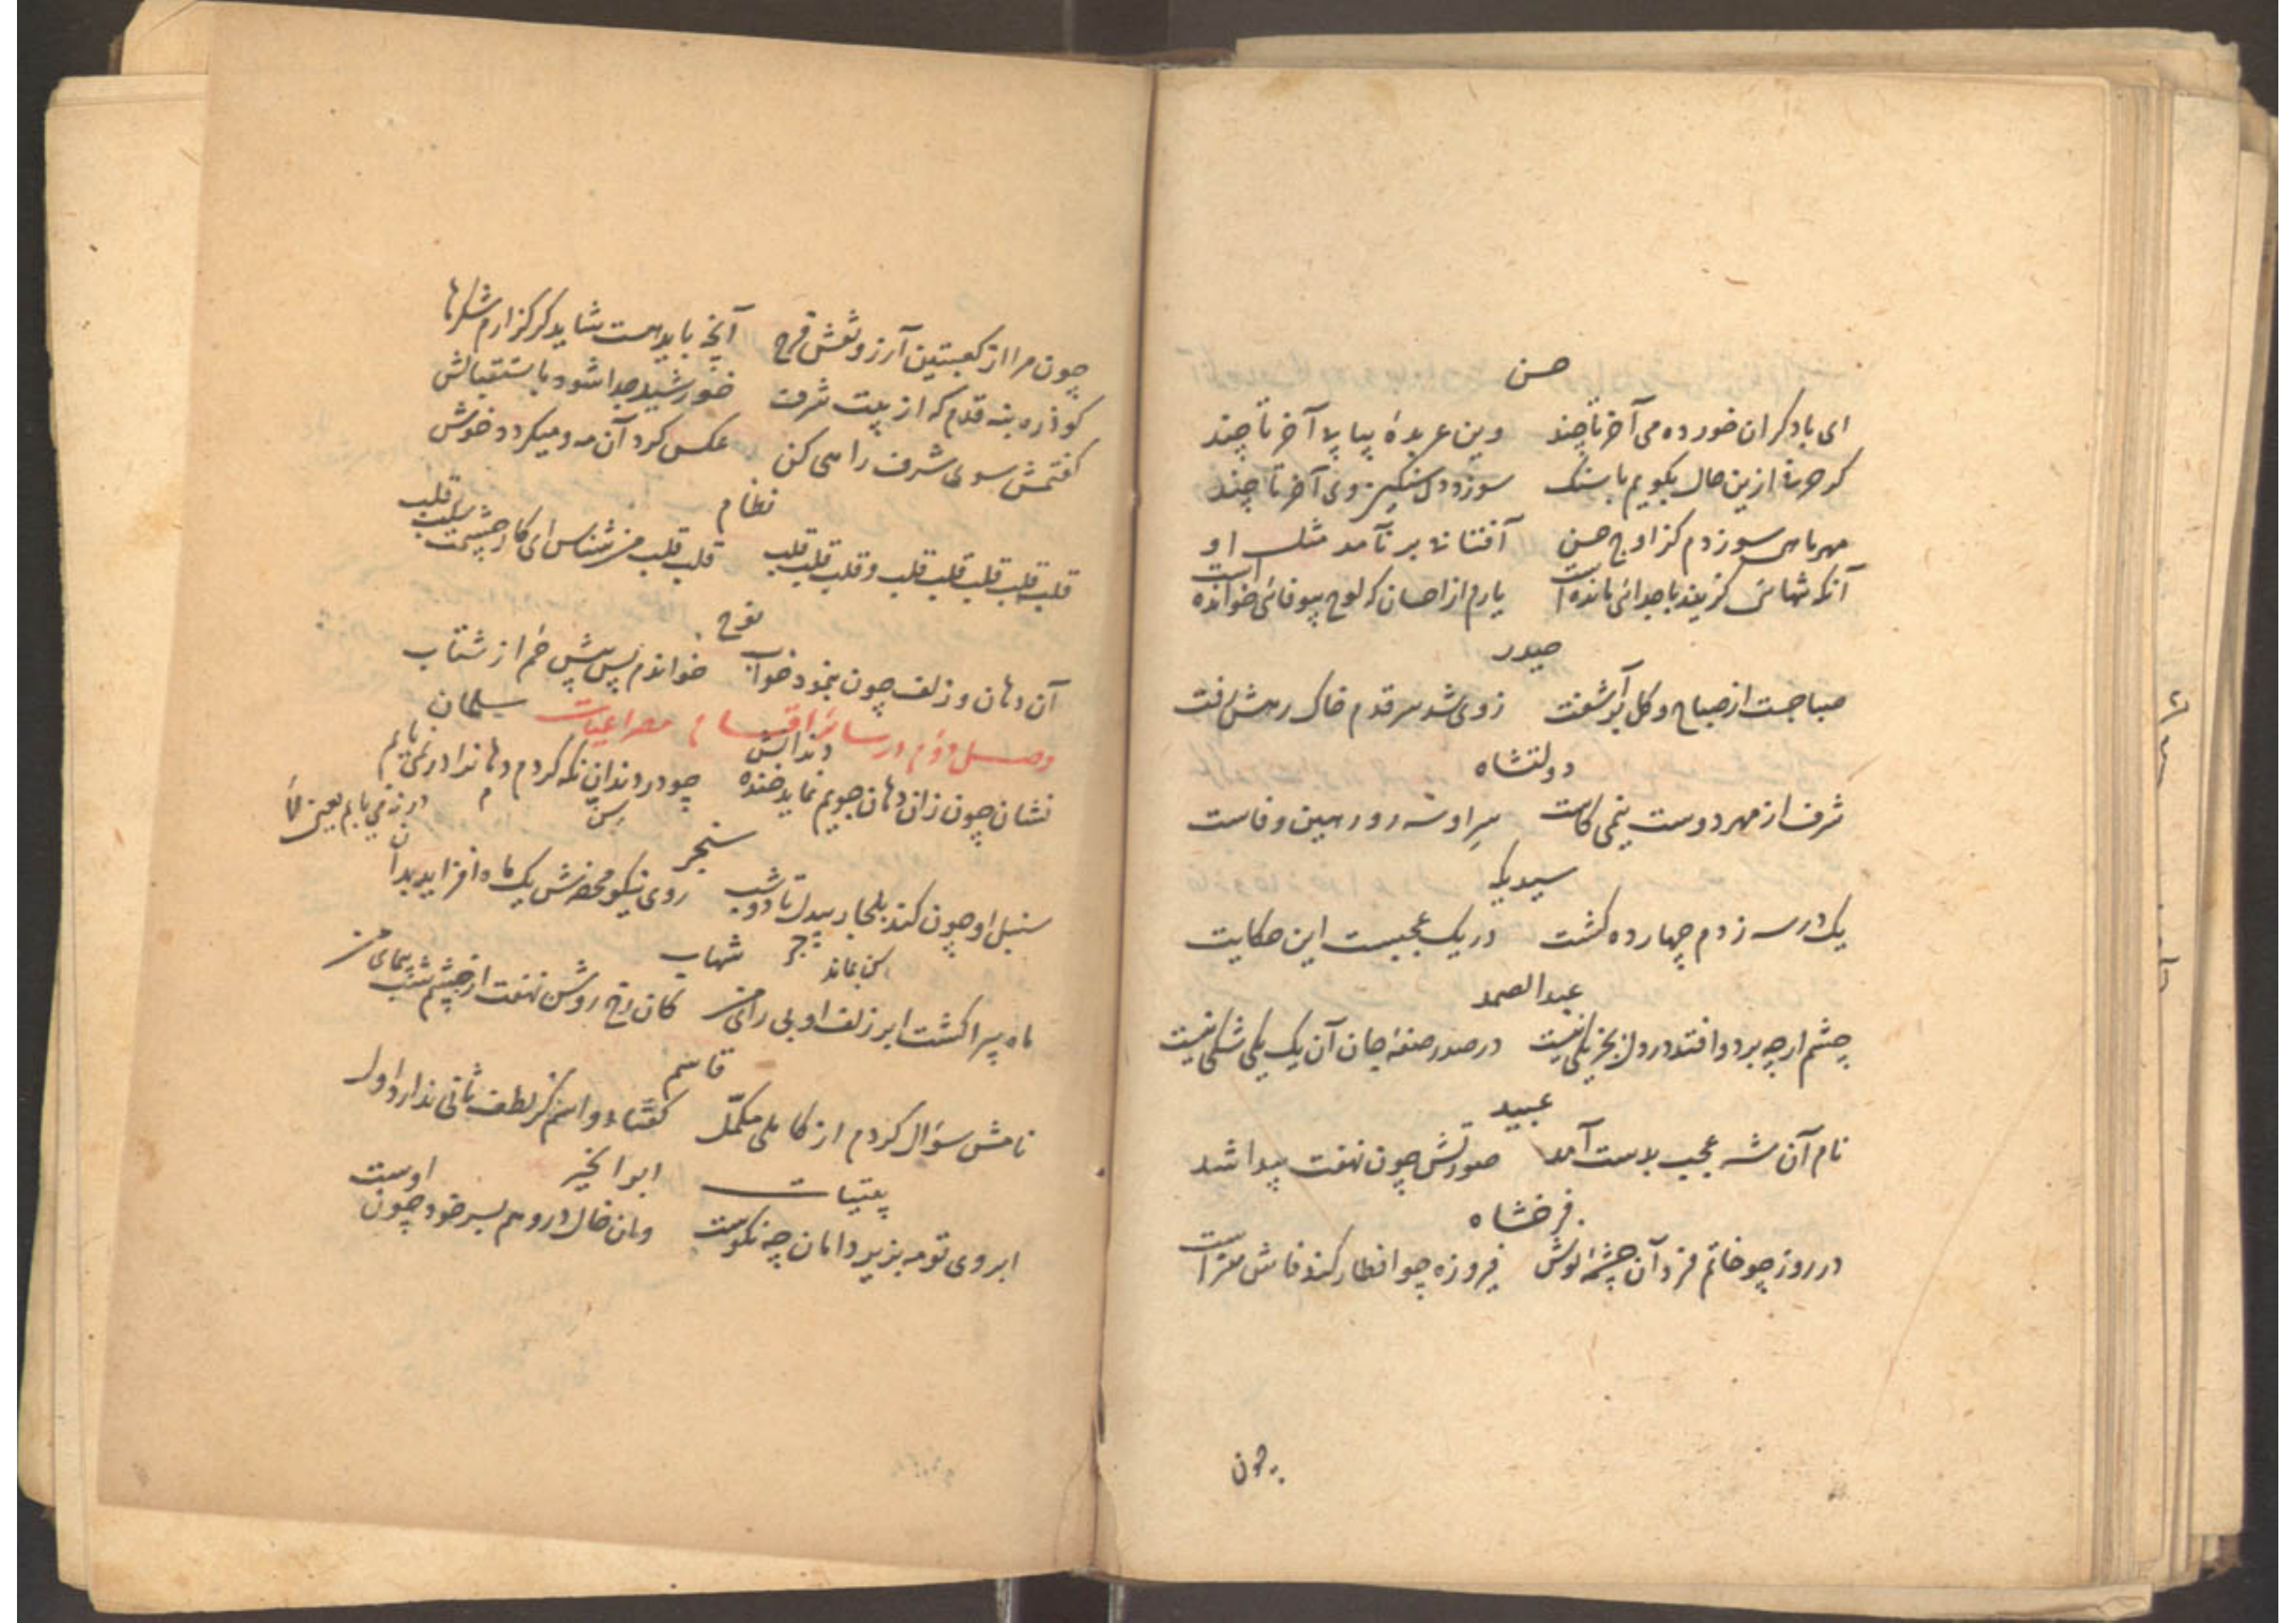 حسن
ای با دکران خورده می آخر تا چند وین عربدهٔ پیاپلا آخر تا چند
کر حرفی ازین حال بکویم با سنک سوزد دل سنکین وی آخر تا چند
مهر ماهی سوزدم کز اوج حسن آفتابی بر نآمد مثل او
آنکه تنهائی کزیند با جدائی مانده است یارم از احسان که لوح بیوفائی خوانده است
حیدر
صبا جست از صباح و کل بر آشفت زوی شد سر قدم خاک رهش رفت
دولتشاه
شرف از مهر دوست نیمی کاست سر او سه رو رهین وفاست
سیدیکه
یک در سه زدم چهارده کشت در یک عجبست این حکایت
عبدالصمد
چشم ارچه برد و افتد در دل بجز یکی نیست در صدر صفهٔ جان آن یک یکی شکی نیست
عبید
نام آن شه عجیب بدست آمد صورتش چون نهفت پیدا شد
فرخشاه
در روز چو خاتم فرد آن چشمهٔ نوش فیروزه چو افطار کند فاش تر است
چون
چون مرا از کعبتین آرزو نقش فرح آنچه باید هست شاید کر کزارم شکرها
کو ذره بنه قدم که از پیت شرف خورشید جدا شود باستقبالش
کفتمش سوی شرف راهی کن عکس کرد آن مه و میکردد خوش
نظام
قلب قلب قلب قلب قلب و قلب قلب قلب قلب قلب من شناس ای کار چشمت قلب قلب
نوح
آن دهان و زلف چون بنمود خواب خواندم پس پیش خم از شتاب
وصل دوم در سائر اقسام مصراعیات سلیمان
نشان چون زان دهان جویم نماید خنده دندانش چو در دندان نکه کردم دهانرا در نمی یابم
سنجر
سنبل او چون کند بلجار بیدل تا دو شب روی نیکو محضرش یک ماه افزاید بدان
شهاب
ماه پیرا کشت ابر زلف او بی رای من کان رخ روشن نهفت از چشم شب پیمای من
قاسم
نامش سؤال کردم از کاملی مکمل کفتا دو اسم کز لطف ثانی ندارد اول
بیتیات ابو الخیر
ابروی تو مه بزیر دامان چه نکوست وان خال در و هم بسر خود چون اوست